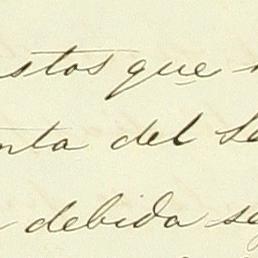 stos que
nta del
debida